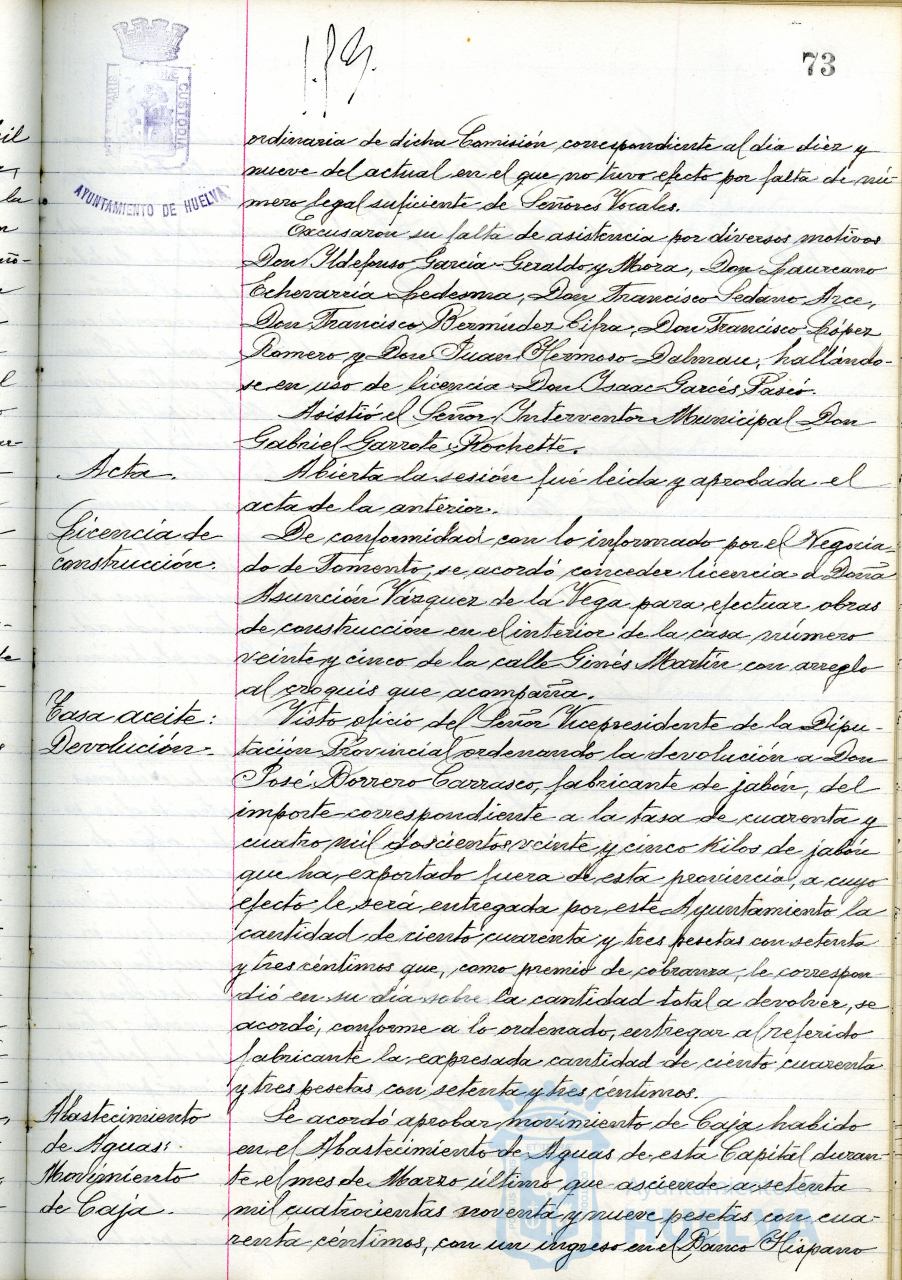 73
AYUNTAMIENTO DE HUELVA
CUSTODIA
ordinaria de dicha Comisión, correspondiente al dia diez y
nueve del actual en el que no tuvo efecto por falta de nú-
mero legal suficiente de Señores Vocales.
Excusaron su falta de asistencia por diversos motivos
Don Ildefonso García-Geraldo y Mora, Don Laureano
Echevarría Ledesma, Don Francisco Sedano Arce,
Don Francisco Bermúdez Cifra, Don Francisco López
Romero y Don Juan Hermoso Dalmau, hallándo-
se en uso de licencia Don Isaac Garcés Pascó.
Asistió el Señor Interventor Municipal Don
Gabriel Garrote Rochette.
Acta.
Abierta la sesión fué leida y aprobada el
acta de la anterior.
Licencia de
construcción.
De conformidad con lo informado por el Negocia-
do de Fomento, se acordó conceder licencia a Doña
Asunción Vázquez de la Vega para efectuar obras
de construcción en el interior de la casa número
veinte y cinco de la calle Ginés Martín con arreglo
al croquis que acompaña.
Tasa aceite:
Devolución.
Visto oficio del Señor Vicepresidente de la Dipu-
tación Provincial ordenando la devolución a Don
José Borrero Carrasco, fabricante de jabón, del
importe correspondiente a la tasa de cuarenta y
cuatro mil doscientos veinte y cinco kilos de jabón
que ha exportado fuera de esta provincia, a cuyo
efecto le será entregada por este Ayuntamiento la
cantidad de ciento cuarenta y tres pesetas con setenta
y tres céntimos que, como premio de cobranza, le correspon
dió en su día sobre la cantidad total a devolver, se
acordó, conforme a lo ordenado, entregar al referido
fabricante la expresada cantidad de ciento cuarenta
y tres pesetas con setenta y tres céntimos.
Abastecimiento
de Aguas:
Movimiento
de Caja.
Se acordó aprobar movimiento de Caja habido
en el Abastecimiento de Aguas de esta Capital duran-
te el mes de Marzo último que asciende a setenta
mil cuatrocientas noventa y nueve pesetas con cua-
renta céntimos, con un ingreso en el Banco Hispano
Ayuntamiento de
HUELVA